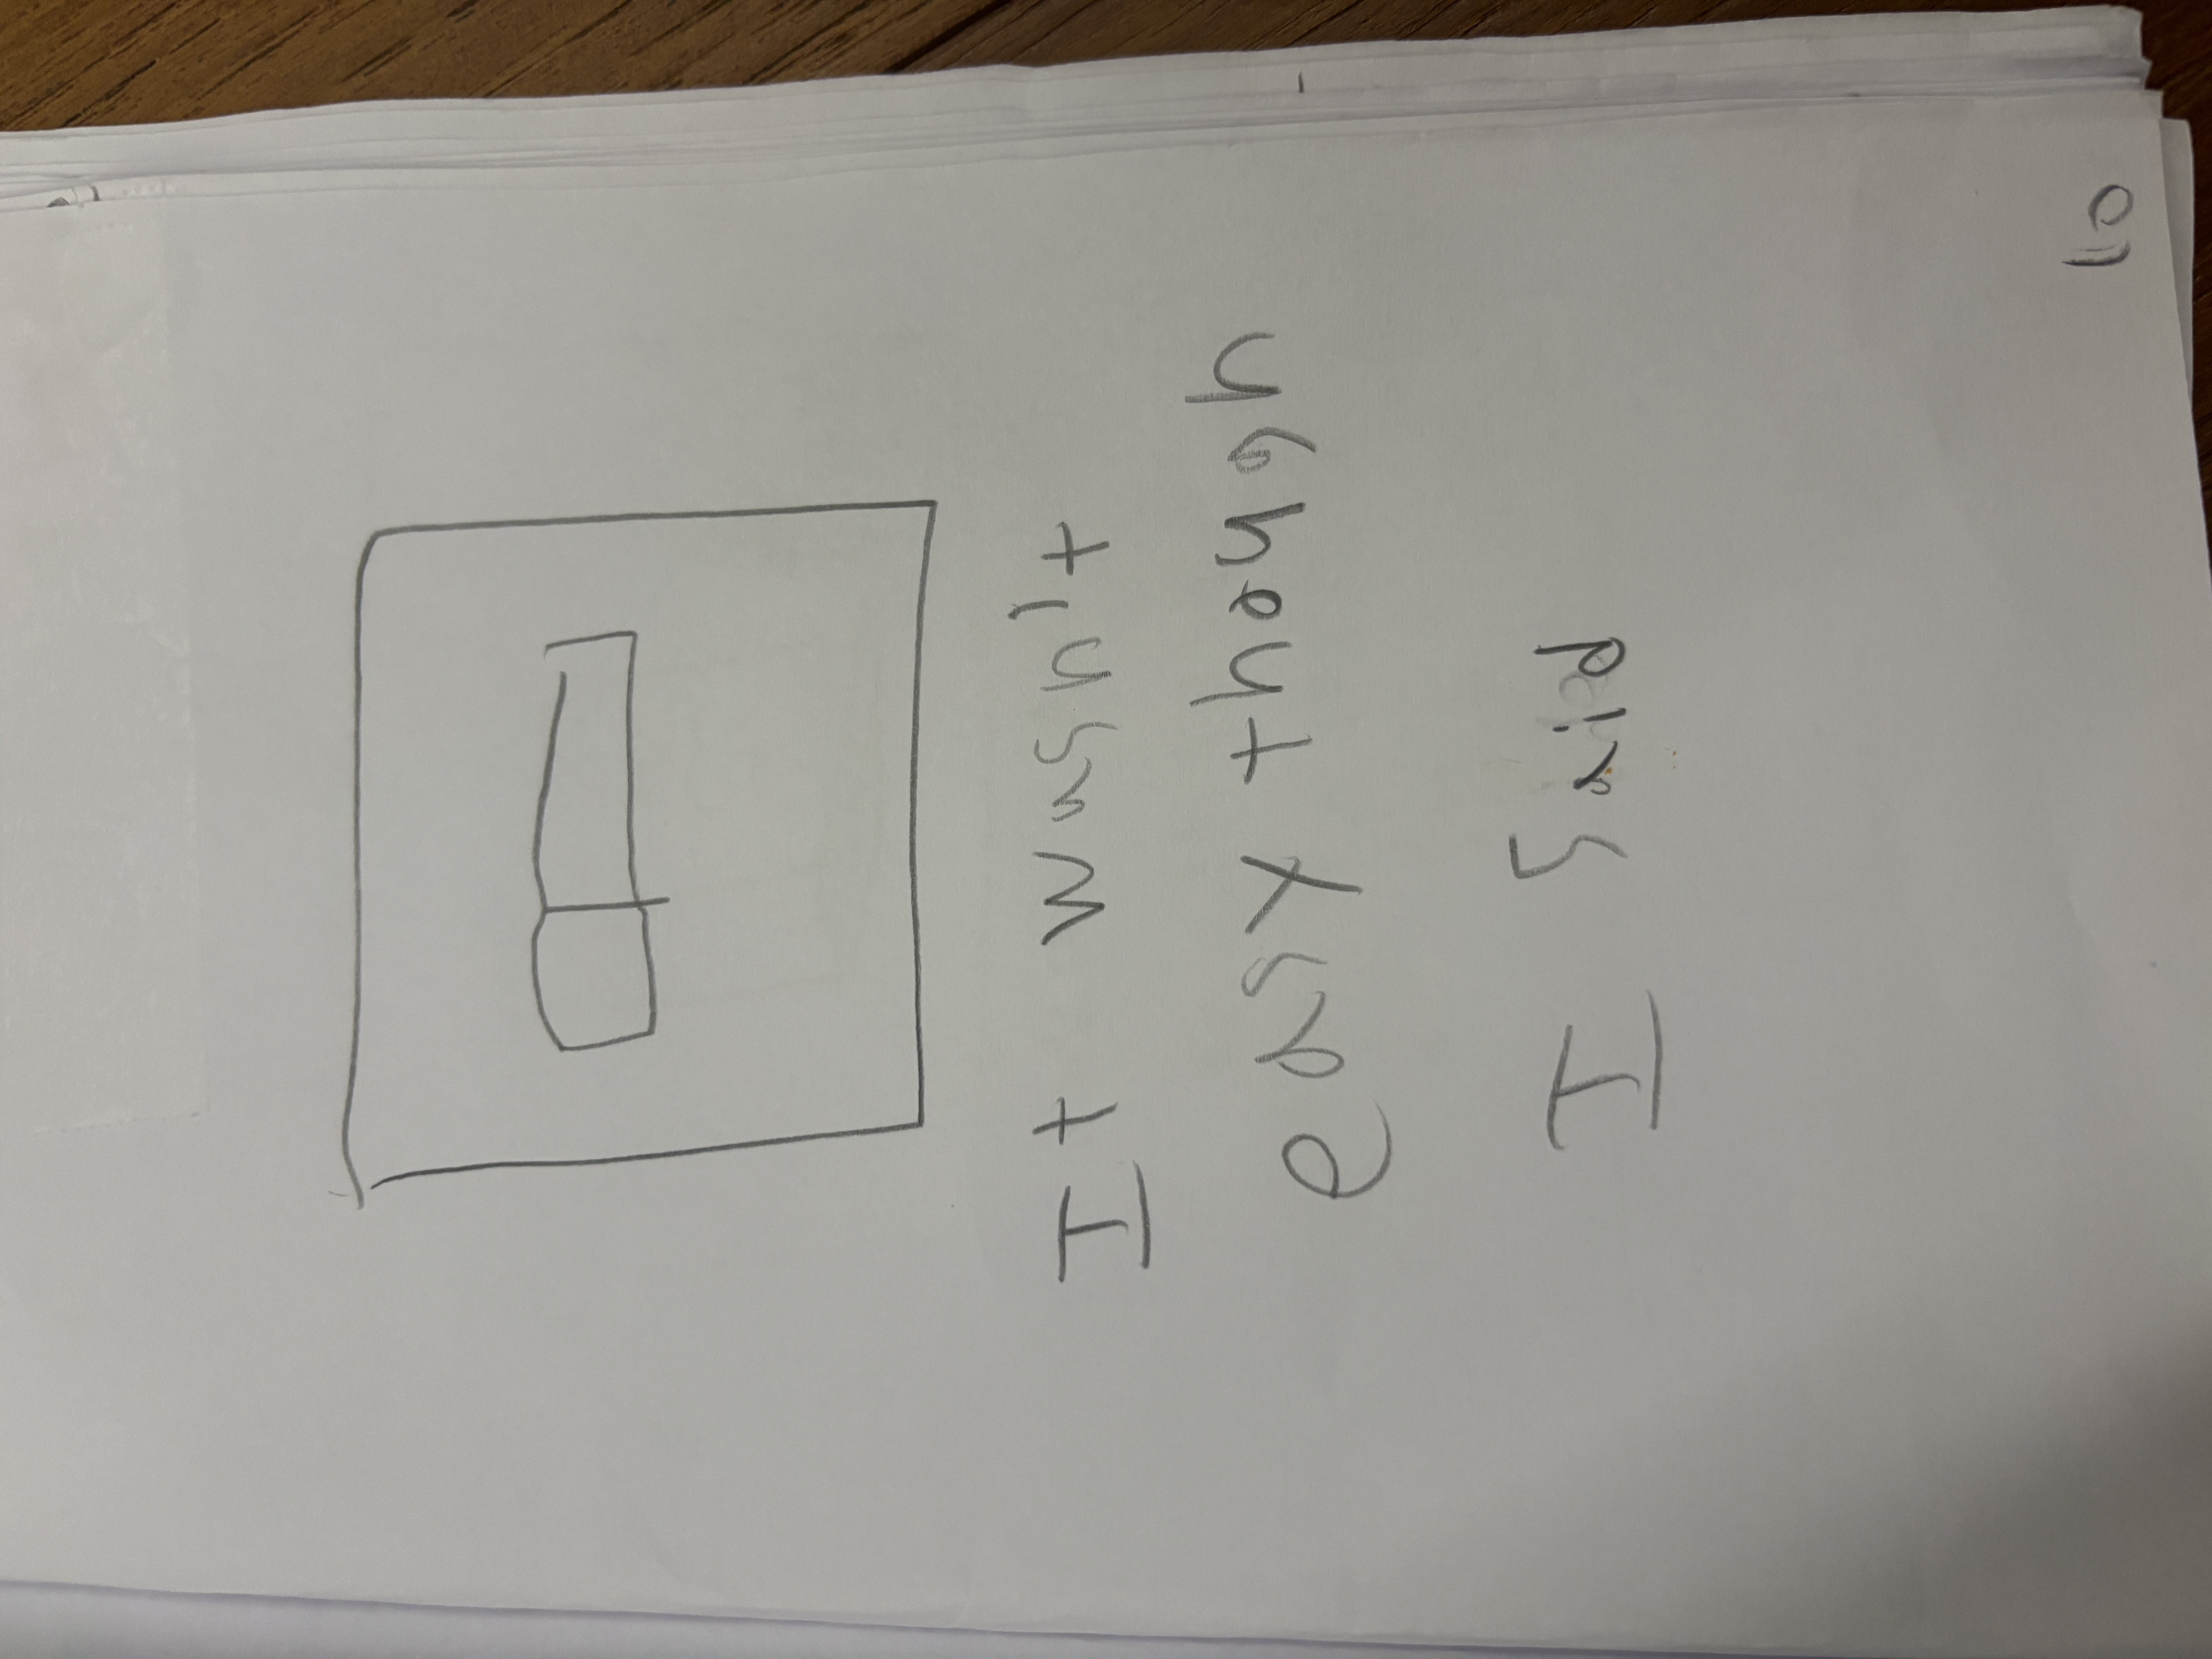 It wasn't
easy though
I said
10